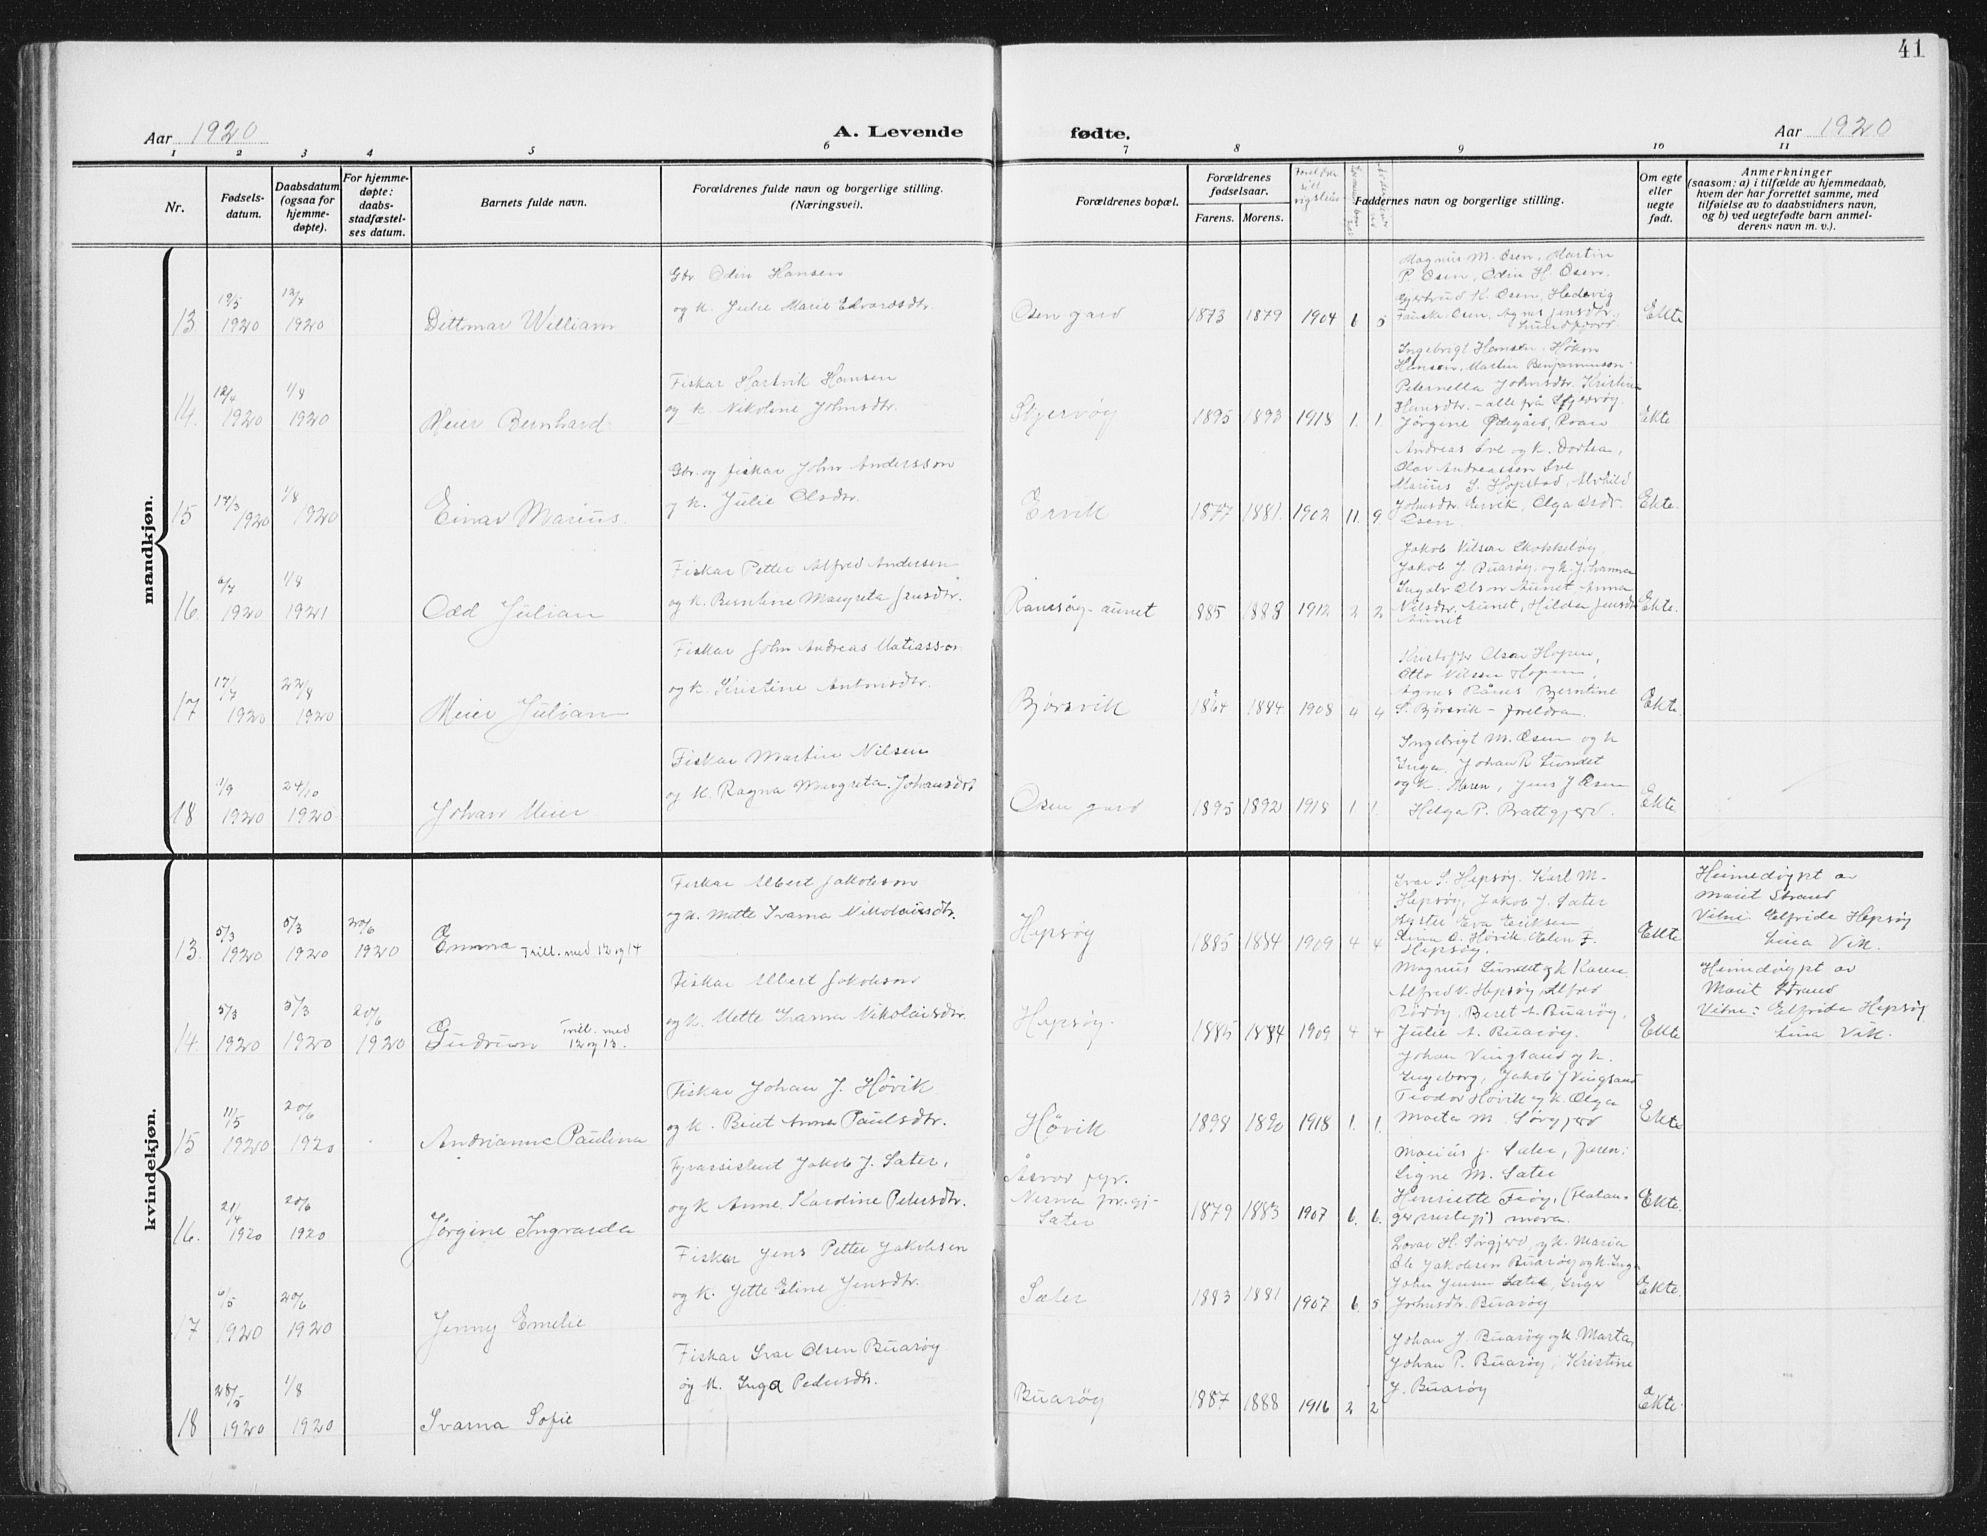 41
Aar 1920
A. Levende
fødte.
Aar 1920
1 2 3 4 5 6 7 8 9 10 11
Nr.
Fødsels-
datum.
Daabsdatum
(ogsaa for
hjemme-
døpte).
For hjemme-
døpte:
daabs-
stadfæstel-
ses datum.
Barnets fulde navn.
Forældrenes fulde navn og borgerlige stilling.
(Næringsvei).
Forældrenes bopæl.
Forældrenes
fødselsaar.
Farens. Morens.
Faddernes navn og borgerlige stilling.
Om egte
eller
uegte
født.
Anmerkninger
(saasom: a) i tilfælde av hjemmedaab,
hvem der har forrettet samme, med
tilføielse av to daabsvidners navn,
og b) ved uegtefødte barn anmel-
derens navn m. v.).
mandkjøn.
13 19/5 1920 12/7 1920 Dittmar William
Gbr. Odin Hansen
og k. Julie Marie Edvardsdtr.
Osen gard 1873 1879 1904 6 5
Magnus M. Osen, Martin
P. Osen, Odin H. Osen.
Gjertrud K. Osen, Hedevig
Osen, Agnes Jensdtr.
Ekte
14. 12/4 1920 1/8 1920 Meier Bernhard
Fiskar Hartvik Hansen
og k. Nikoline Johnsdtr.
Skjervøy 1895 1893 1918 1. 1.
Ingebrigt Hansen, Håkon
Hansen, Martin Benjaminsen
Peternella Johnsdtr. Kristine
Hansdtr. - alle frå Skjervøy.
Jørgine Ødegård, Roan
Ekte
15 17/3 1920 1/8 1920 Einar Marius.
Gbr. og fiskar John Andersson
og k. Julie Olsdtr.
Ervik 1877 1881. 1902 11. 9
Andreas Sve og k. Dortea,
Olav Andreassen Sve
Marius S. Hopstad, Alvhild
Johnsdtr. Ervik, Olga Olsdtr.
Osen
Ekte.
16. 6/7 1920 1/8 1921 Odd Julian
Fiskar Petter Alfred Andersen
og k. Berntine Margreta Jensdtr.
Ramsøy-aunet 1885 1888 1912 2 2
Jakob Nilsen
Jakob J. Buarøy, og k. Johanna
Ingolv Olson Aunet Anna
Nilsdtr. Aunet, Hilda Jensdtr
Aunet
Ekte.
17 17/7 1920 22/8 1920 Meier Julian
Fiskar John Andreas Matiasson
og k. Kristine Antonsdtr.
Bjørsvik 1864 1884 1908 4 4
Kristoffer Olsen Hopen,
Otto Nilsen Hopen,
Agnes Rånes Bjerntine
S. Bjørsvik - foreldra.
Ekte.
18 11/9 1920 24/10 1920 Johan Meier
Fiskar Martin Nilsen
og k. Ragna Margreta Johansdtr
Osen gard 1895 1892 1918 1. 1.
Ingebrigt M. Osen og k
Inga. Johan R. Sundet
og k. Maren, Jens J. Osen
Helga P. Brattgjerd.
Ekte
kvindekjøn.
13. 5/3 1920 5/3 1920 20/6 1920 Emma Trill. med 12 og 14
Fiskar Albert Jakobson
og k. Mette Ivarna Nikolaisdtr.
Hepsøy 1885 1884 1909 4 4
Ivar S. Hepsøy. Karl M.
Hepsøy, Jakob J. Sæter
Eva Eriksen
Høvik Elen F.
Hepsøy.
Ekte
Heimedøypt av
Marit Strand
Vitne Elfride Hepsøy
Lina Vik.
14. 5/3 1920 5/3 1920 20/6 1920 Gudrun Trill. med
12 og 13.
Fiskar Albert Jakobson
og k. Mette Ivarna Nikolaisdtr.
Hepsøy. 1885 1884 1909 4 4
Magnus Sundet og k Karen.
Alfred V. Hepsøy, Alfred
Rørøy, Beret A. Buarøy,
Julie A. Buarøy.
Ekte
Heimedøypt av
Marit Strand
Vitne: Elfride Hepsøy
Lina Vik.
15 11/5 1920 20/6 1920 Andrianne Paulina
Fiskar Johan J. Høvik
og k. Beret Anna Paulsdtr.
Høvik 1898 1890 1918 1. 1.
Johan Vingsand og k.
Ingeborg, Jakob J Vingsand
Teodor Høvik og k. Olga
M. Sørgjerd
Ekte
16. 21/4 1920 20/6 1920 Jørgine Ingvarda
Fyrassistent Jakob J. Sæter,
og k Anne Karoline Petersdtr.
Åsvær fyr.
Sæter
1879 1883 1907 6. 6.
Marius J. Sæter,
Signe M. Sæter
Henriette
mora.
Ekte.
17 6/5 1920 20/6 1920 Jenny Emelie
Fiskar Jens Petter Jakobsen
og k. Jette Eline Jensdtr.
Sæter 1883 1881 1907 6. 5
H. Sørgjerd, og k. Maria
Ole Jakobsen Buarøy og k. Inga
John Jensen Sæter, Inger
Johnsdtr. Buarøy
Ekte.
18 28/5 1920 1/8 1920 Ivarna Sofie
Fiskar Ivar Olsen Buarøy
og k. Inga Pedersdtr.
Buarøy 1887 1888 1916 2 2
Johan J. Buarøy og k. Marta,
Johan P. Buarøy, Kristine
J. Buarøy
Ekte.